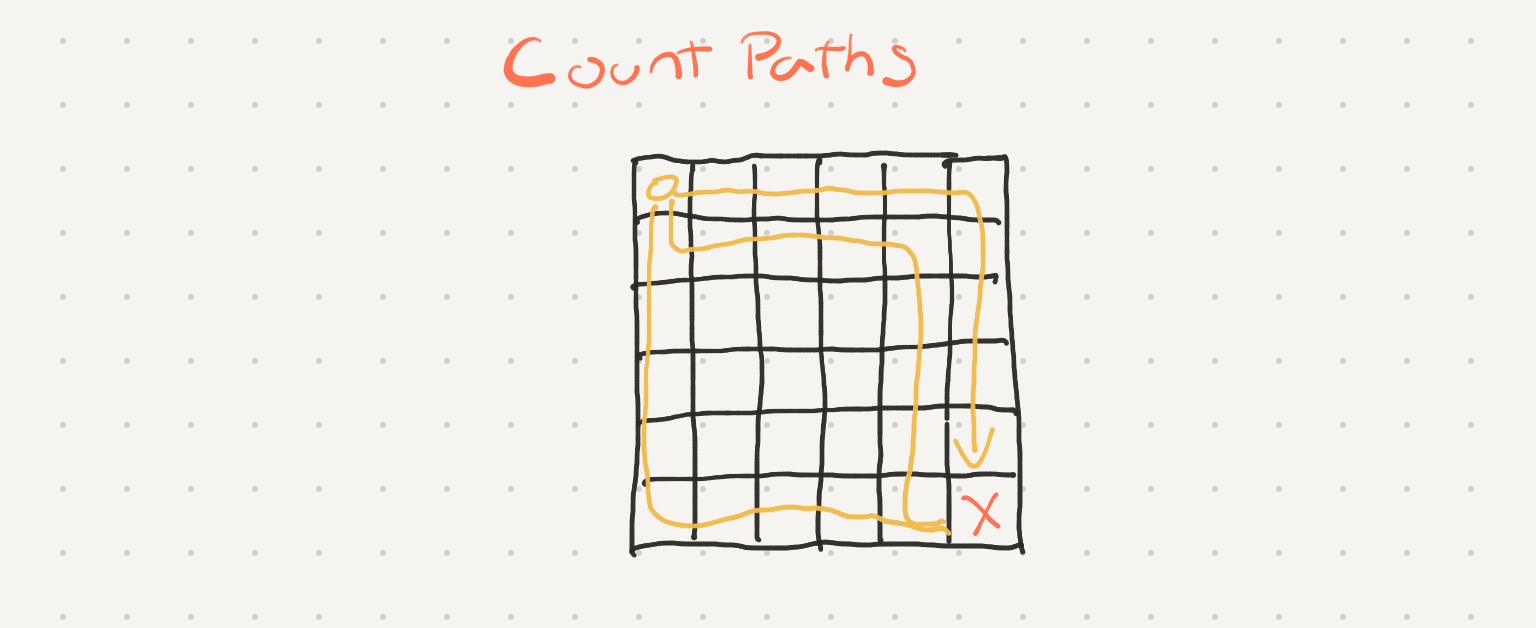 Count Paths
X